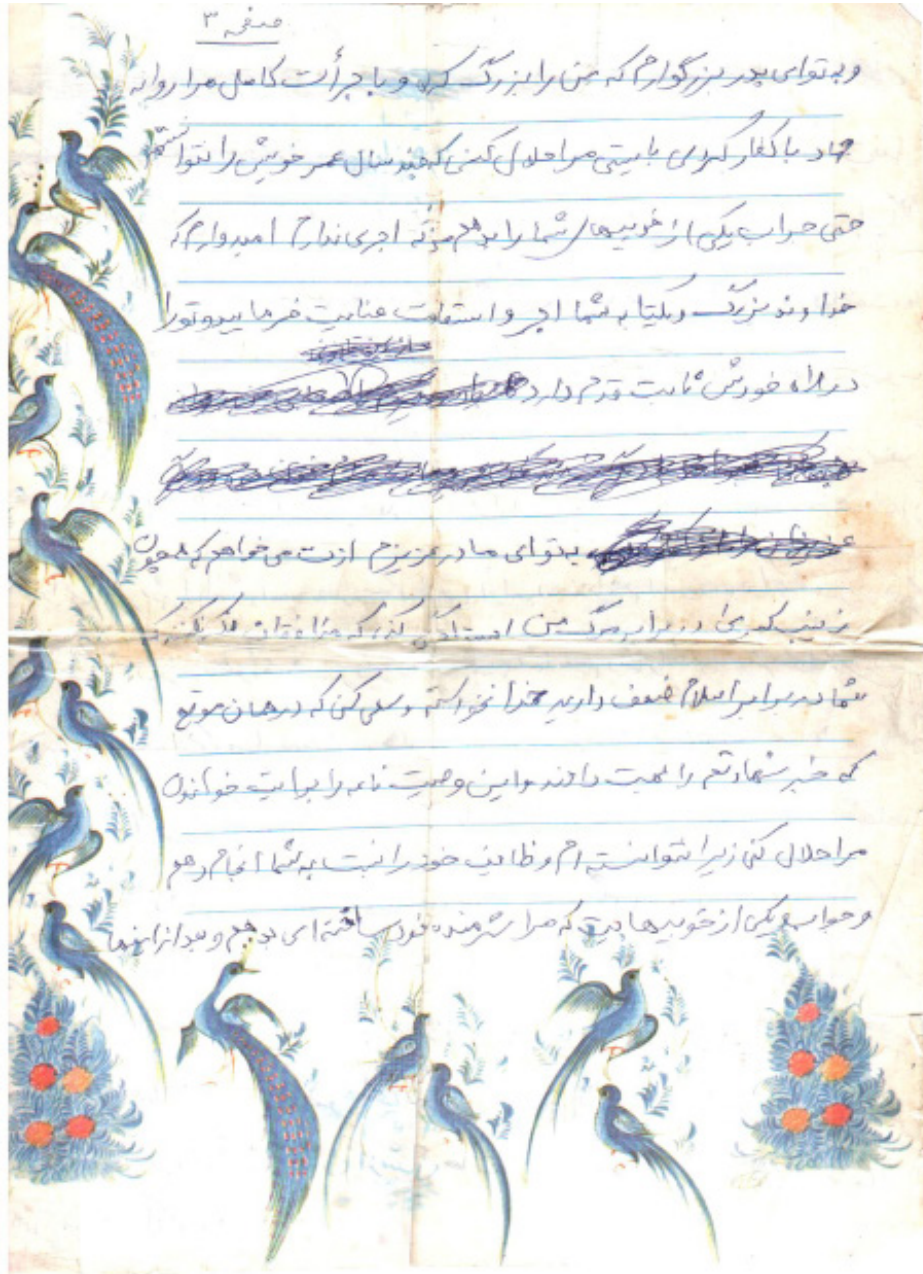 صفحه ۳
و به توای پدر بزرگوارم که من را بزرگ کرده و با جرأت کامل مرا روانه
جهاد با کفار کردی بایستی مرا حلال کنی که چند سال عمر خویش را نتوانستم
حتی جواب یکی از خوبیهای شما را بدهم اجری ندارم امیدوارم که
خداوند بزرگ و یکتا به شما اجر و استقامت عنایت فرماید و تو را
در راه خودش ثابت قدم دارد
به توای مادر عزیزم ازت می خواهم که همچون
زینب کبری در برابر مرگ من ایستادگی کنی که منافقان فکر نکنند که
شما در برابر اسلام ضعف دارید خدا نخواسته و سعی کن که در همان موقع
که خبر شهادتم را بهت دادند و این وصیت نامه را برایت خواندن
مرا حلال کنی زیرا نتوانسته ام وظایف خود را نسبت به شما انجام دهم
و جواب یکی از خوبیهایت که مرا شرمنده خود ساخته ای بدهم و بعد از اینها